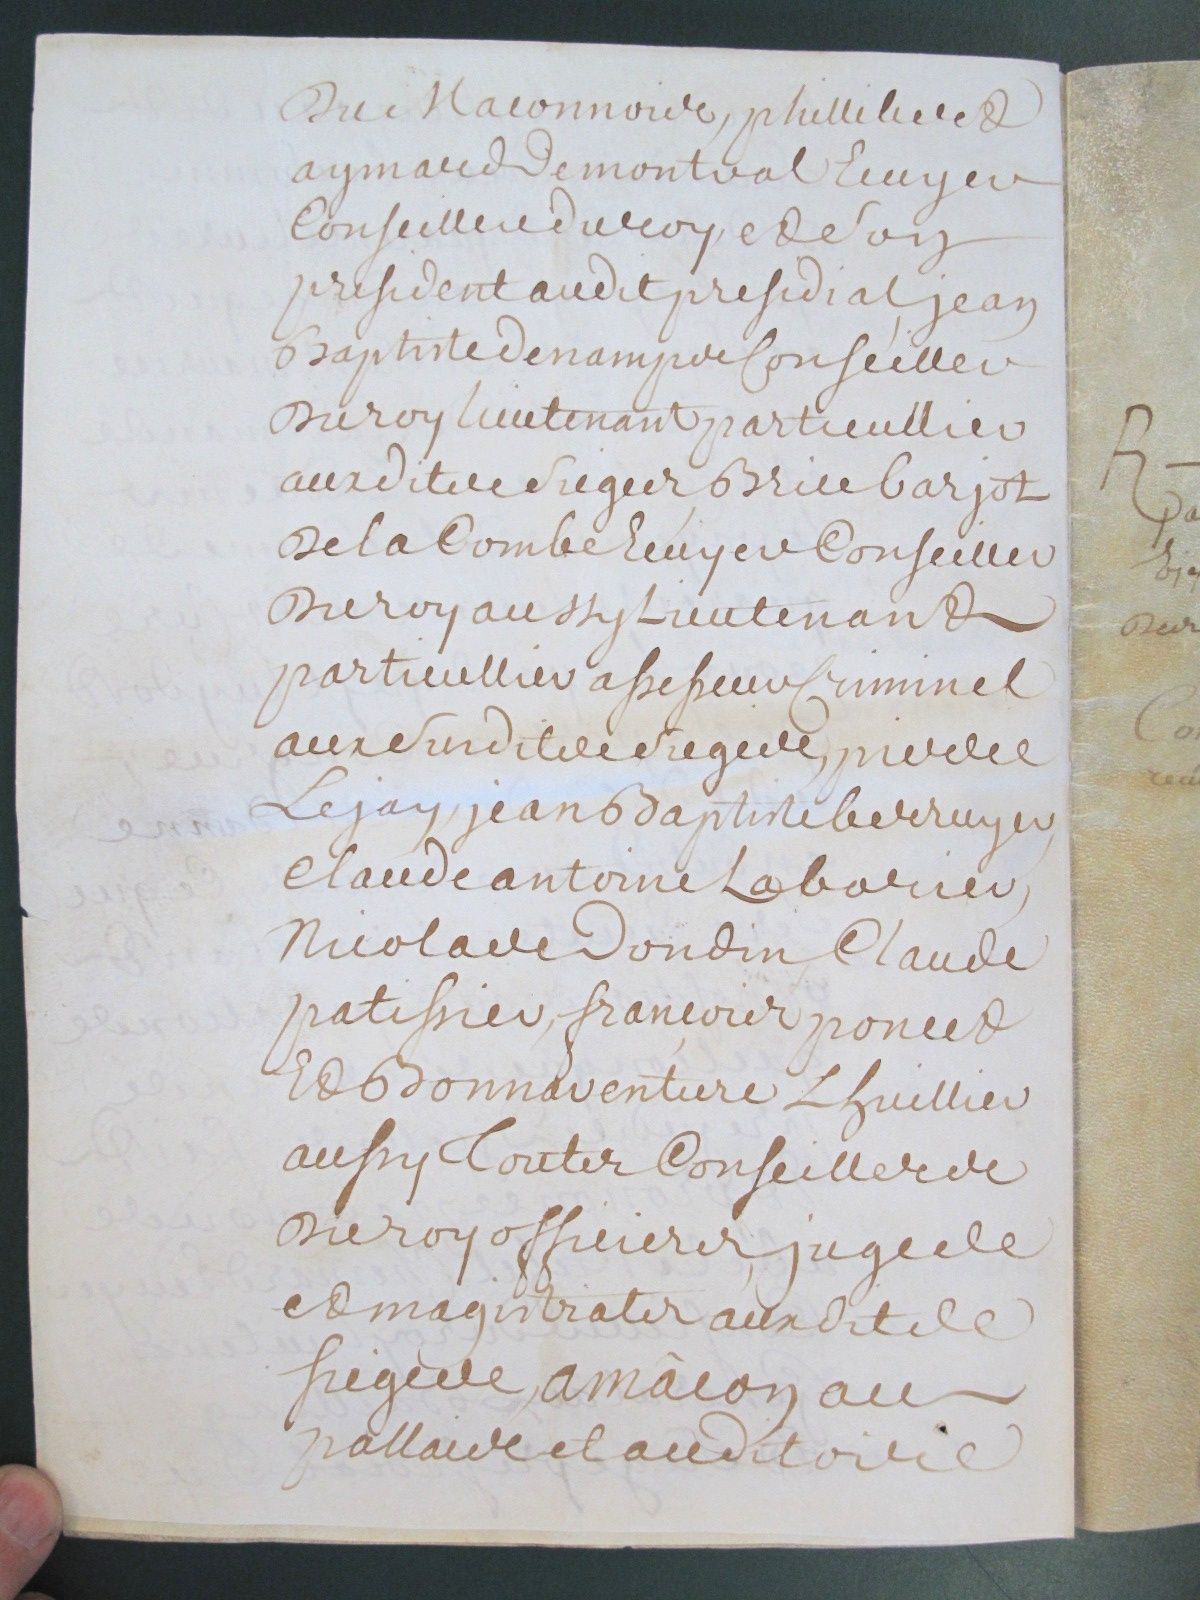 du Maconnois, phillibert
aymard Demontval Ecuyer
Conseiller du roy, et son
president audit presidial, jean
Baptiste denamps Conseiller
du roy lieutenant particullier
auxdites sieges, Brice barjot
De la Combe Ecuyer Conseiller
du roy aussy Lieutenant
particullier assesseur Criminel
aux susdites sieges, pierre
Lejay, jean Baptiste berruyer,
Claude antoine Laborier,
Nicolas Dondin Claude
patissier, françois poncet
Et Bonnaventure Lhuillier
aussy toutes Conseillers
du roy officiers, juges
et magistrates auxdites
sieges, a mâcon au
pallais et auditoire
R
Pa
Con